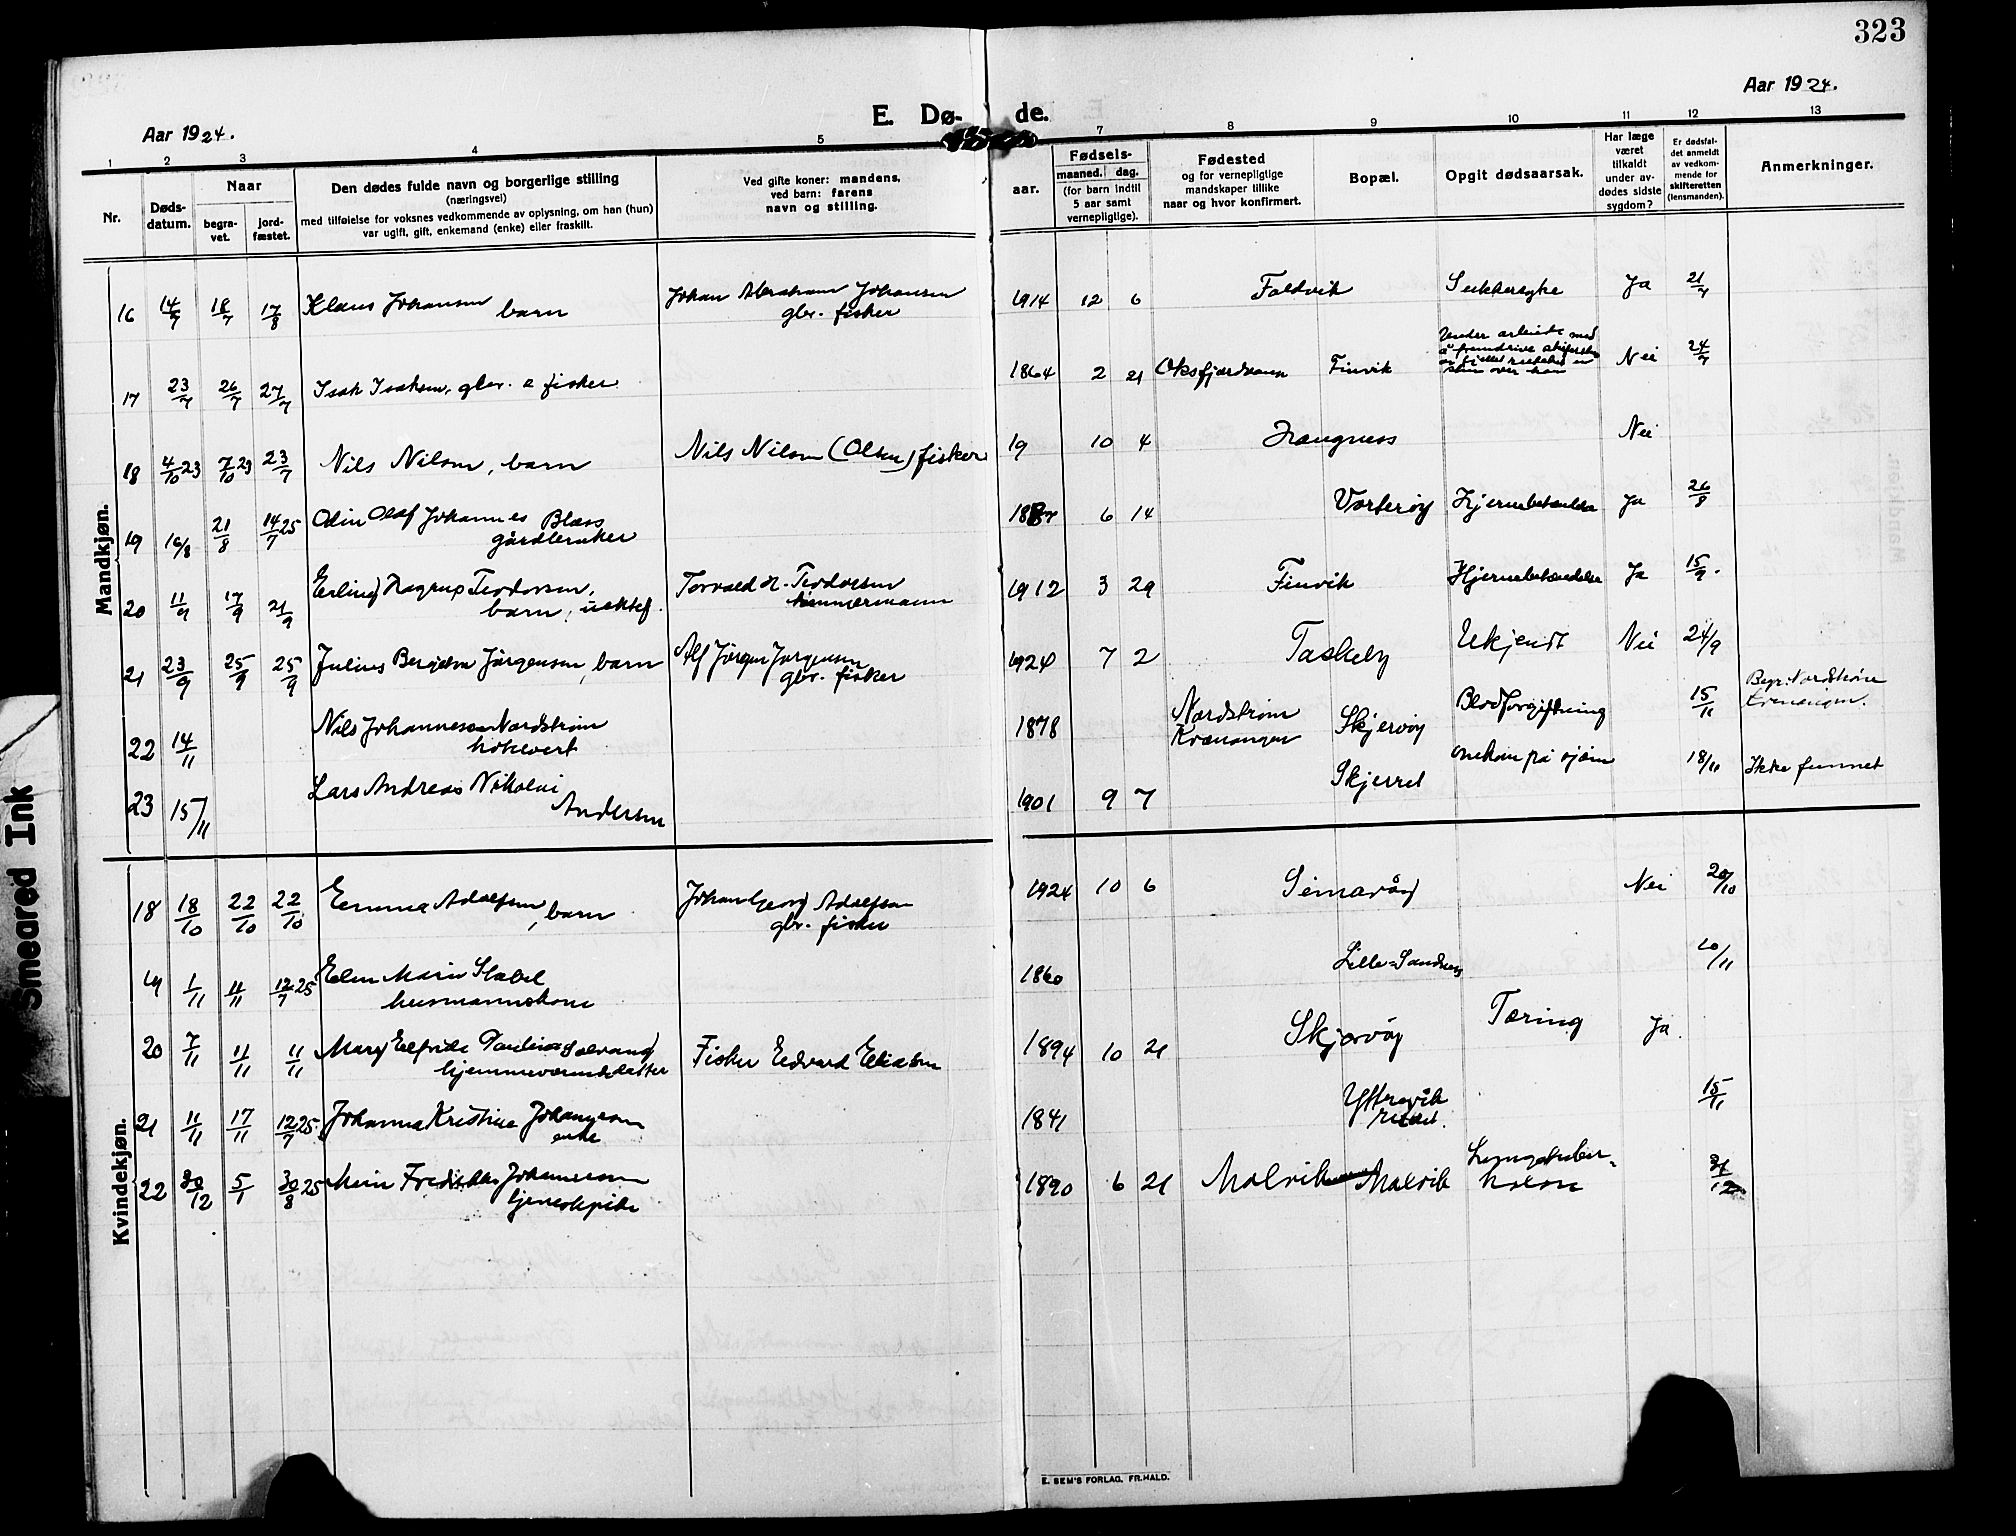 323
Aar 1924.
Aar 1924.
E. Dø- de.
1 2 3 4 5 7 8 9 10 11 12 13
Nr.
Døds-
datum.
Naar
begra-
vet.
jord-
fæstet.
Den dødes fulde navn og borgerlige stilling
(næringsvei)
med tilføielse for voksnes vedkommende av oplysning, om han (hun)
var ugift, gift, enkemand (enke) eller fraskilt.
Ved gifte koner: mandens,
ved barn: farens
navn og stilling.
Fødsels-
aar.
maaned. dag.
(for barn indtil
5 aar samt
vernepligtige).
Fødested
og for vernepligtige
mandskaper tillike
naar og hvor konfirmert.
Bopæl.
Opgit dødsaarsak.
Har læge
været
tilkaldt
under av-
dødes sidste
sygdom?
Er dødsfal-
det anmeldt
av vedkom-
mende for
skifteretten
(lensmanden).
Anmerkninger.
Mandkjøn.
16 14/7 18/7 17/8 Klaus Johansen barn Johan Abraham Johansen
gbr. fisker 1914 12 6 Foldvik Sukkersyke Ja 21/7
17 23/7 26/7 27/7 Isak Isaksen, gbr. e fisker 1864 2 21 Finvik Under arbeide med
sten over han Nei 24/7
18 4/10 23 7/10 23 23/7 Nils Nilsen, barn Nils Nilsen (Olsen) fisker 19 10 4 Nei
19 16/8 21/8 14/7 25 Odin Olaf Johannes
gårdbruker 6 14 Vorterøy Hjernebetændelse Ja 26/8
20 11/9 17/9 21/9 Erling Teodorsen,
barn, uektef. Torvald Teodorsen
tømmermann 1912 3 29 Finvik Hjernebetændelse Ja 15/9.
21 23/9 25/9 25/9 Julius Jørgensen, barn Alf Jørgen Jørgensen
gbr. fisker 1924 7 2 Taskeby Ukjendt Nei 24/9
22 14/11 Nils Johannesen Nordstrøm
1878 Nordstrøm
Kvænangen Skjervøy Blodforgiftning 15/11
23 15/11 Lars Andreas Nikolai
Andersen 1901 9 7 Skjervel på sjøen 18/11 Ikke funnet
Kvindekjøn.
18 18/10 22/10 22/10 Emma Adolfsen, barn Johan Georg Adolfsen
gbr. fisker 1924 10 6 Nei 20/10
19 1/11 11/11 12/7 25 Elen Marie
husmannskone 1860 Lille-Sandnes 10/11
20 7/11 11/11 11/11 Mary Elfride
hjemmeværende datter Fisker Edvard Eliasen 1894 10 21 Skjervøy Tæring Ja.
21 11/11 17/11 12/7 25 Johanna Kristine
enke 1841 15/11
22 30/12 5/1 30/8 25 Johannesen
tjenestepike 1890 6 21 Molvik Molvik
E. SEM'S FORLAG, FR.HALD.
Smeared Ink